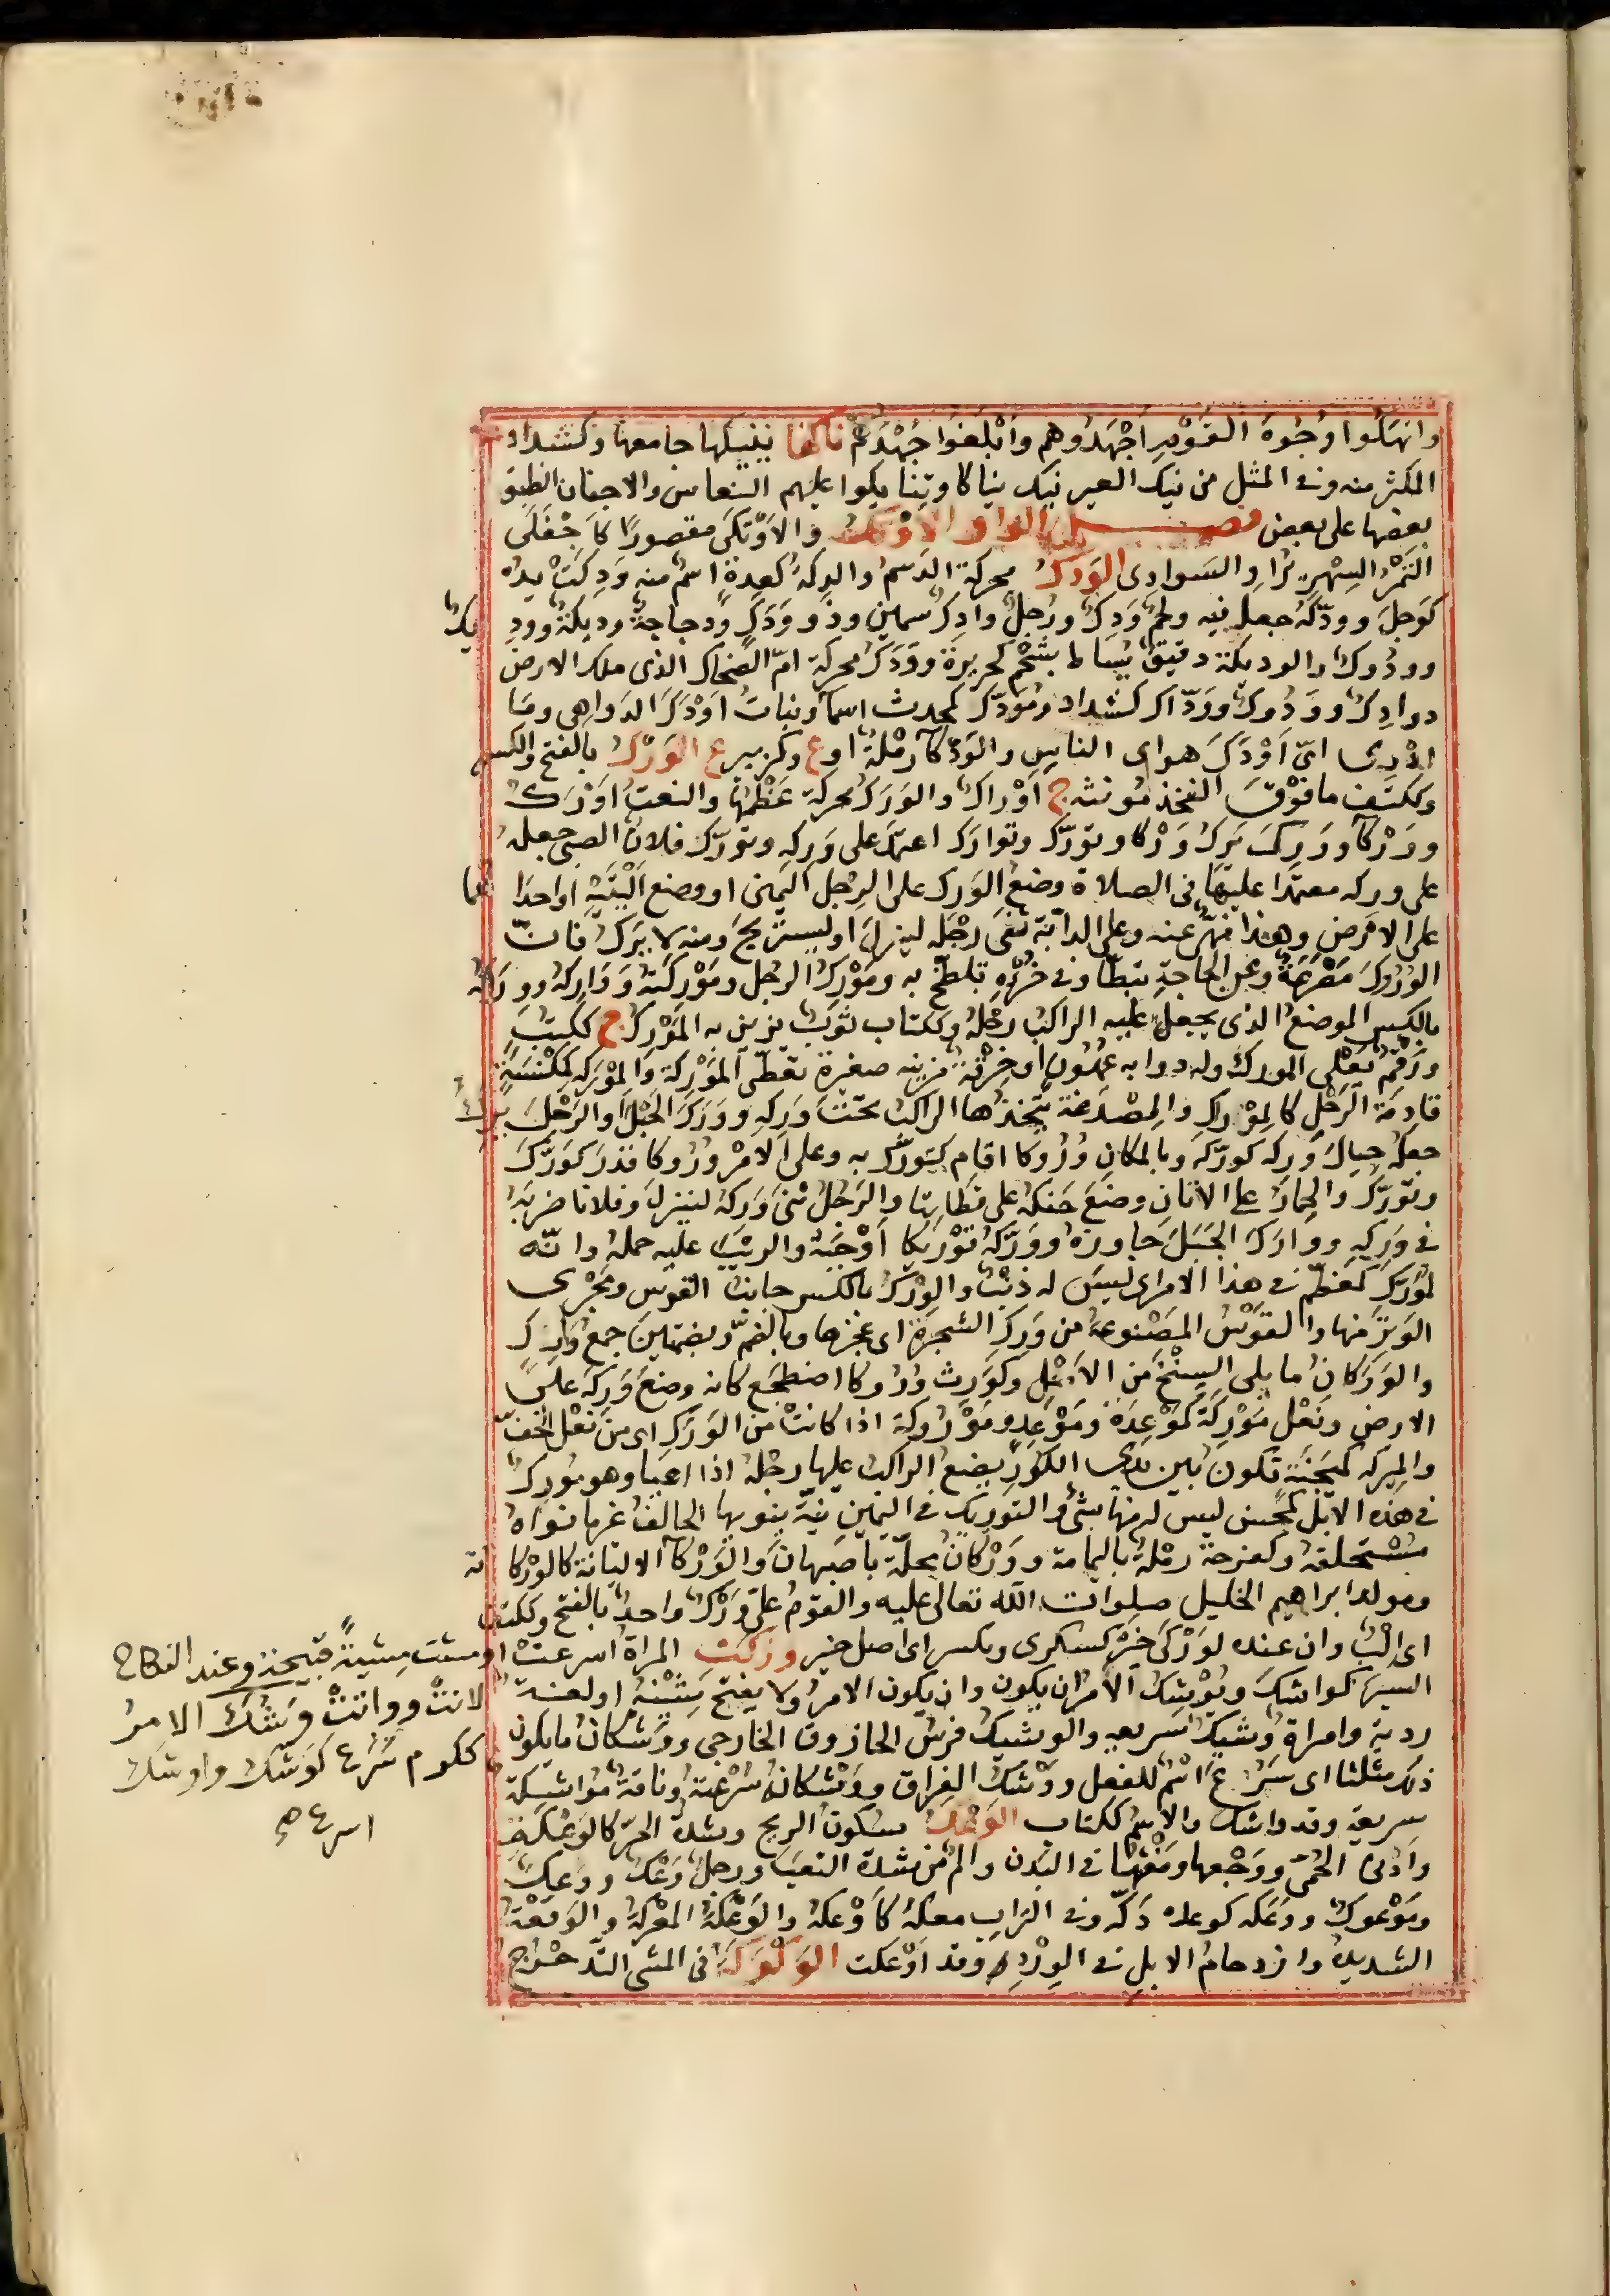 وانهكوا وجوه القوم اجهدوهم وابلغوا جهدهم ناكها ينيكها جامعها وكشداد
المكثر منه وفى المثل من ينك العير ينك نياكا وتنايكوا عليهم النعاس والاجفان انطبق
بعضها على بعض فصل الواو الاوتك والاوتكى مقصورا كاجفلى
التمر السهريز او السوادى الودك محركة الدسم والدكة كعدة اسم منه ودكت يده
كوجل وودكه جعله فيه ولحم ودك ورجل وادك سمين وذو ودك ودجاجة وديكة ووديك
وودوك والوديكة دقيق يساط بشحم كحريرة وودك محركة ام الضحاك الذى ملك الارض
ووادك وودوك ووداك كشداد ومودك كمحدث اسما وبنات اودك الدواهى وما
ادرى اى اودك هو اى الناس والودكا رملة او ع وكزبير ع الورك بالفتح والكسر
وككتف ما فوق الفخذ مونثه ج اوراك والورك محركة عظمها والنعت اورك
ووركا وورك يرك وركا وتورك وتوارك اعتمد على وركه وتورك فلان الصبى جعله
على وركه معتمدا عليها فى الصلاة وضع الورك على الرجل اليمنى او وضع اليتيه او احداهما
على الارض وهذا منهى عنه وعلى الدابة ثنى رجله لينزل او ليستريح ومنه لا يرك فان
الوروك مصرعة وعن الحاجة تبطا وفى خرئه تلطخ به ومورك الرجل وموركته وواركه ووراكه
بالكسر الموضع الذى يجعل عليه الراكب رجله وككتاب ثوب يزين به المورك ج ككتب
ورقم يعلى المورك وله ذوابه عهون او خرقة مزينه صغيرة تغطى الموركة والموركه كمكنسة
قادمة الرحل كالموراك والمصدغة يتخذها الراكب تحت وركه وورك الحبل او الرحل يرك
جعله حيال وركه كوركه وبالمكان وروكا اقام كتورك به وعلى الامر وروكا قدر كورك
وتورك والحمار على الاتان وضع حنكه على قطاتها والرجل ثنى وركه لينزل وفلانا ضربه
فى وركه ووارك الجبل جاوزه ووركه توريكا اوجبه والذنب عليه حمله وانه
لمورك كمعظم فى هذا الامر اى ليس له ذنب والورك بالكسر جانب القوس ومجرى
الوتر منها والقوس المصنوعة من ورك الشجرة اى عجزها وبالضم وبضمتين جمع وراك
والوركان ما يلى السنخ من الاصل وكورث وروكا اضطجع كانه وضع وركه على
الارض ونعل موركة كموعدة وموعد وموروكة اذا كانت من الورك اى من نعل الخف
والميركه كميجنة تكون بين يدى الكور يضع الراكب عليها رجله اذا اعيا وهو مورك
فى هذه الابل كمحسن ليس له منها شئ والتوريك فى اليمين نية ينويها الحالف غير ما نواه
مستحلفه وكفرحة رملة باليمامة ووركان محلة باصبهان والوركا الاليانة كالوركانة
ومولد ابراهيم الخليل صلوات الله تعالى عليه والقوم على ورك واحد بالفتح وككتف
اى الب وان عنده لوركى خبر كسكرى ويكسر اى اصل خبر وزكت المراة اسرعت او مشت مشية قبيحة وعند النكاح
لانت وواتت وشك الامر
ككرم سرع كوشك واوشك
اسرع صح
السير كواشك ويوشك الامر ان يكون وان يكون الامر ولا يفتح شينه او لغة
ردية وامراة وشيك سريعه والوشيك فرس الحازوق الخارجى ووشكان ما يكون
ذلك مثلثا اى سرع اسم للفعل ووشك الفراق ووشكانه سرعته وناقة مواشكة
سريعة وقد واشك والاسم ككتاب الوعك سكون الريح وشدة الحر كالوعكة
واذى الحمى ووجعها ومغثها فى البدن والم من شدة التعب ورجل وعك ووعك
وموعوك ووعكه كوعده دكه وفى التراب معكه كاوعكه والوعكة المعركة والوقعة
الشديدة وازدحام الابل فى الورد وقد اوعكت الوكوكة فى المشى التدحرج